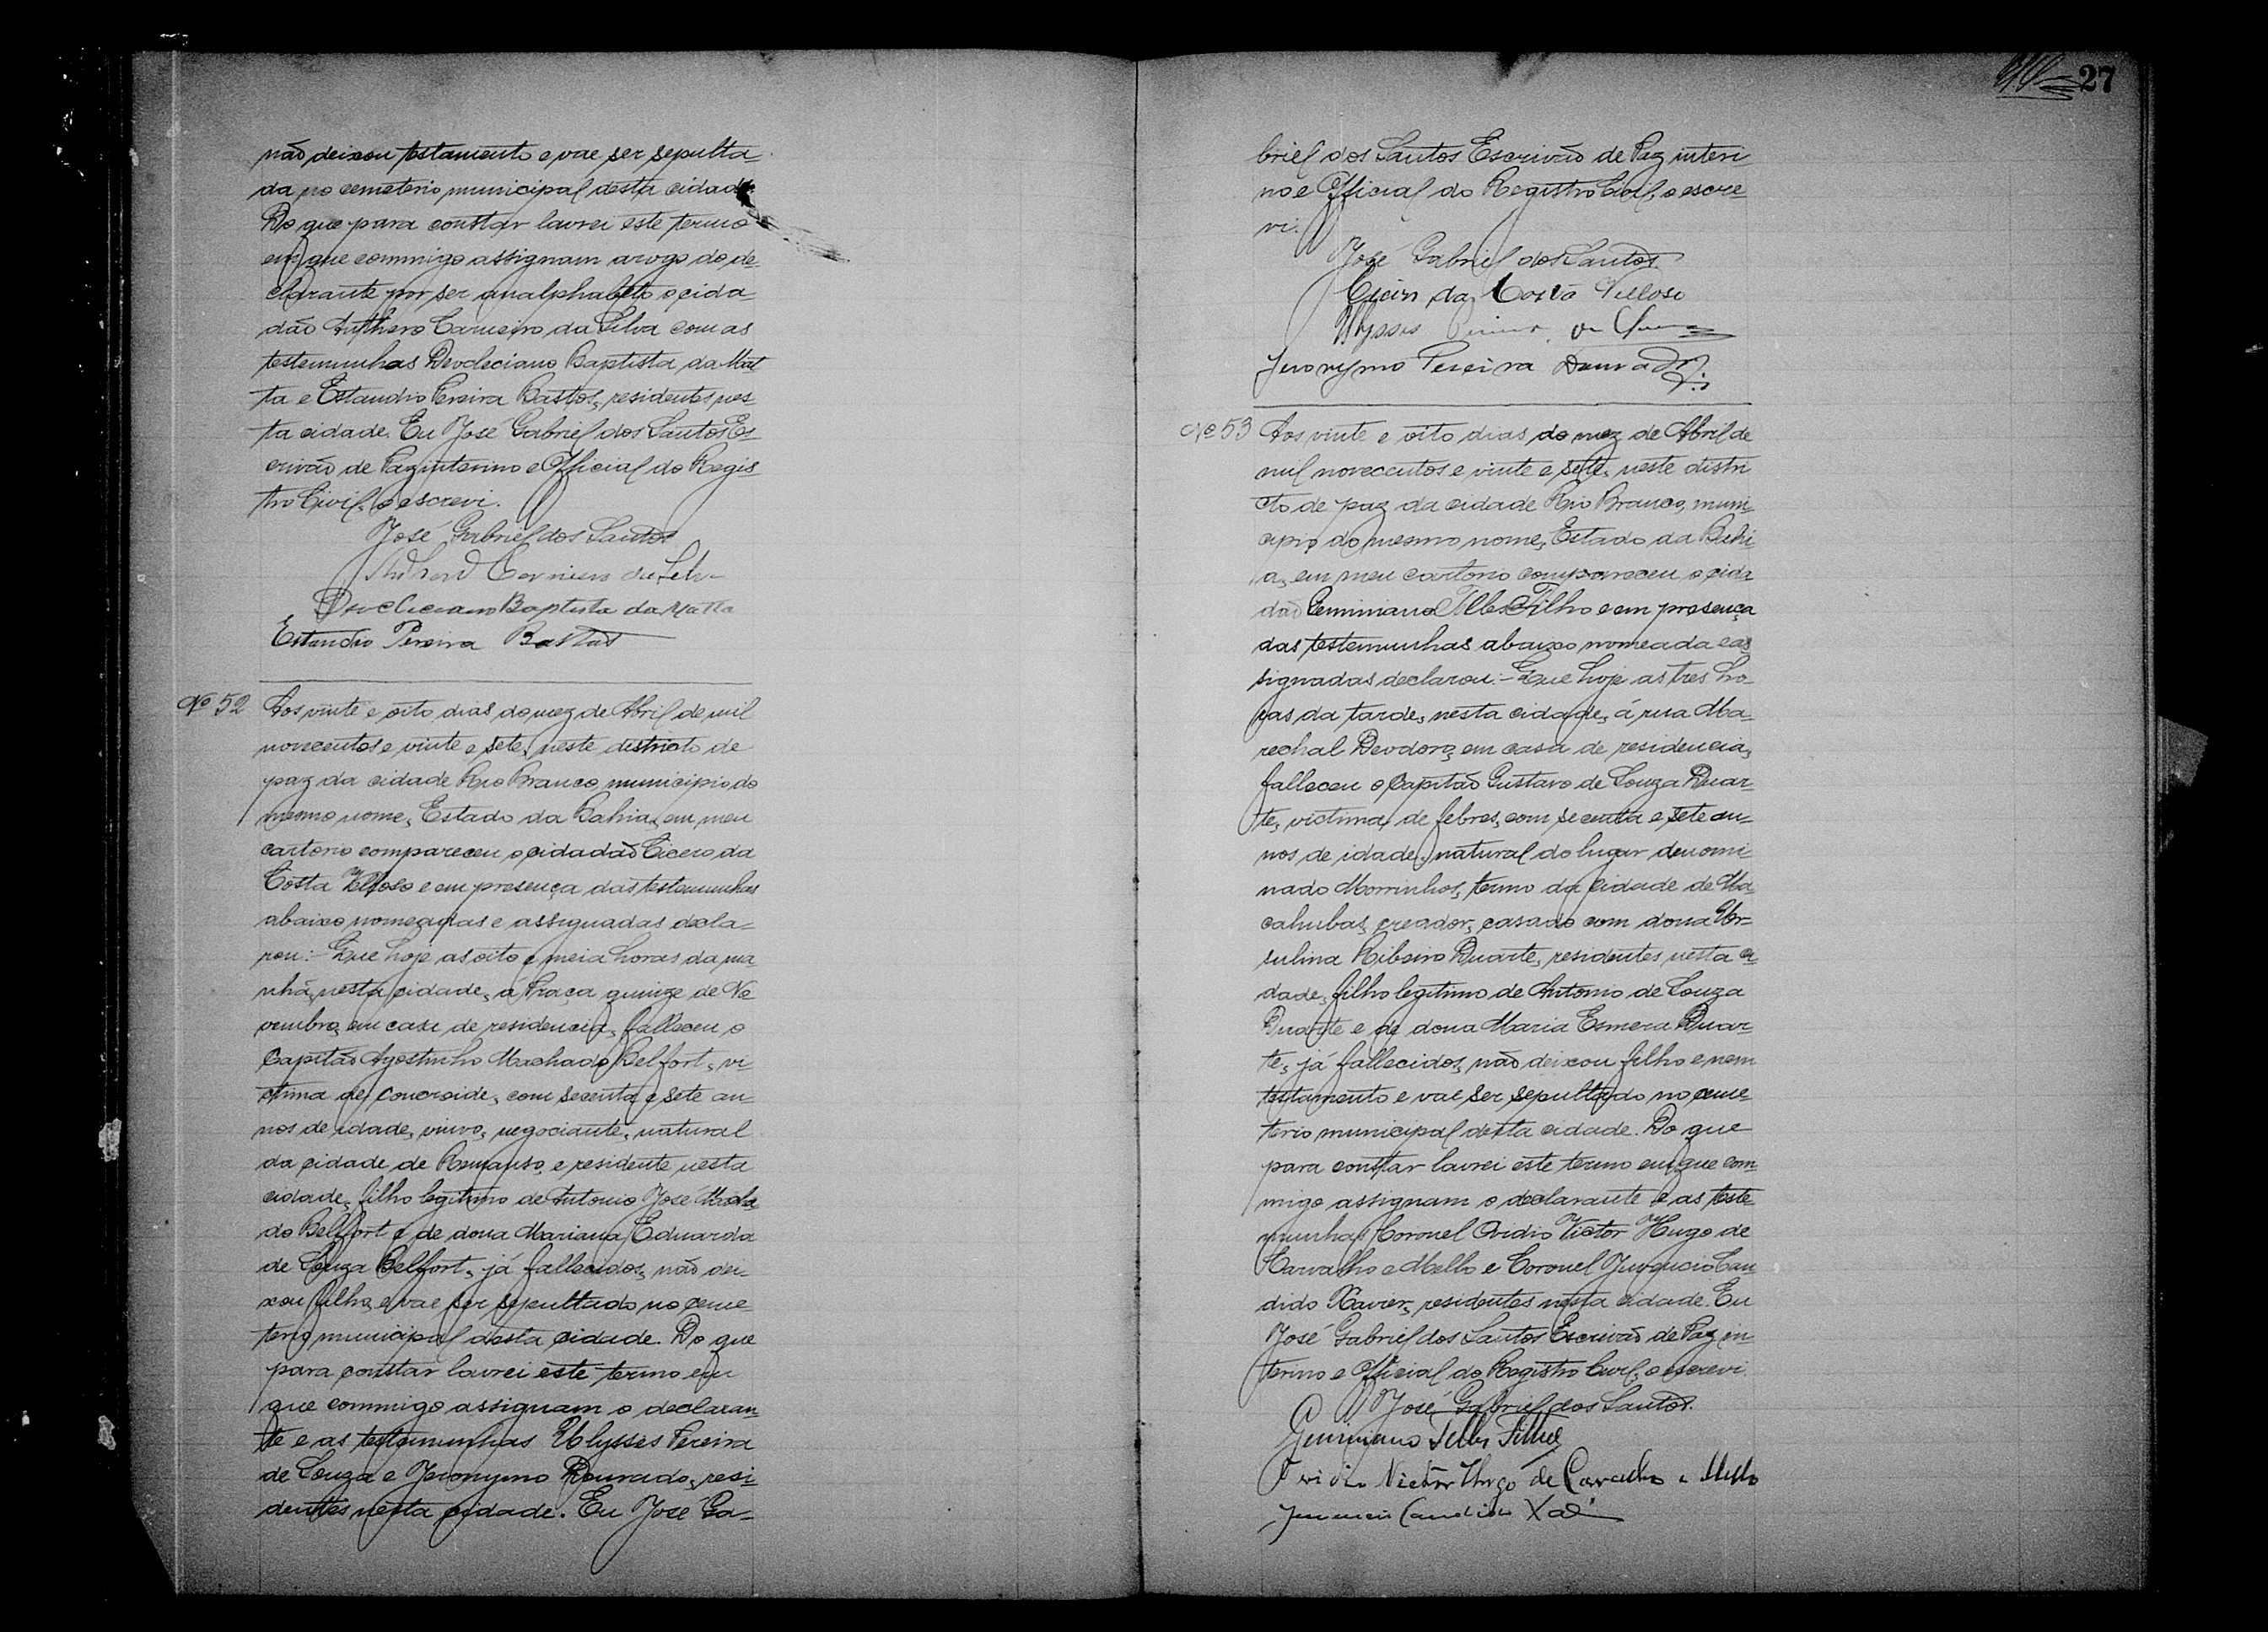 não deixou testamento e vae ser sepulta-
da no cemeterio municipal desta cidade.
Do que para constar lavrei este termo
em que commigo assignam a rogo do de-
clarante por ser analphabeto o cida
dão Anthero Carneiro da Silva com as
testemunhas Deocleciano Baptista da Mat
ta e Estandio Pereira Bastos, residentes nes-
ta cidade. Eu José Gabriel dos Santos Es-
crivão de Paz interino e Official do Regis-
tro Civil, o escrevi.
José Gabriel dos Santos
Carneiro da Silva
Deocleciano Baptista da Matta
Estandio Pereira Bastos
Nº 52 Aos vinte e oito dias do mez de Abril de mil
novecentos e vinte e sete, neste districto de
paz da cidade Rio Branco, municipio do
mesmo nome, Estado da Bahia, em meu
cartorio compareceu o cidadão Cicero da
Costa Velloso e em presença das testemunhas
abaixo nomeadas e assignadas decla-
rou:- Que hoje as oito e meia horas da ma-
nhã, nesta cidade, á Praça quinze de No
vembro, em casa de residencia, falleceu o
Capitão Agostinho Machado Belfort, vi-
ctima de concroide, com secenta e sete an-
nos de idade, viuvo, negociante, natural
da cidade de Remanso e residente nesta
cidade, filho legitimo de Antonio José Macha
do Belfort e de dona Mariana Eduarda
de Souza Belfort, já fallecidos, não dei-
xou filho, e vae ser sepultado no ceme
terio municipal desta cidade. Do que
para constar lavrei este termo em
que commigo assignam o declaran-
te e as testemunhas Ulysses Pereira
de Souza e Jeronymo Dourado, resi-
dentes nesta cidade. Eu José Ga-
27
briel dos Santos Escrivão de Paz interi
no e Official do Registro Civil, o escre-
vi.
José Gabriel dos Santos
Cicero da Costa Velloso
Ulysses Pereira de Souza
Jeronymo Pereira Dourado
Nº 53 Aos vinte e oito dias do mez de Abril de
mil novecentos e vinte e sete, neste distri
cto de paz da cidade Rio Branco, muni-
cipio do mesmo nome, Estado da Bahi-
a, em meu cartorio compareceu o cida
dão Geminiano Telles Filho e em presença
das testemunhas abaixo nomeada e as
signadas declarou:- Que hoje as tres ho
ras da tarde, nesta cidade, á rua Ma-
rechal Deodoro, em casa de residencia,
falleceu o Capitão Gustavo de Souza Duar-
te, victima de febres, com secenta e sete an-
nos de idade, natural do lugar denomi-
nado Morrinhos, termo da cidade de Ma
cahubas, creador, casado com dona Ur-
sulina Ribeiro Duarte, residentes nesta ci
dade, filho legitimo de Antonio de Souza
Duarte e de dona Maria Esmera Duar-
te, já fallecidos, não deixou filho e nem
testamento e vae ser sepultado no ceme-
terio municipal desta cidade. Do que
para constar lavrei este termo em que com
migo assignam o declarante e as teste-
munhas Coronel Ovidio Victor Hugo de
Carvalho e Mello e Coronel Juvencio Can
dido Xavier, residentes nesta cidade. Eu
José Gabriel dos Santos Escrivão de Paz in-
terino e Official do Registro Civil, o escrevi
José Gabriel dos Santos.
Geminiano Telles Filho
Ovidio Victor Hugo de Carvalho e Mello
Juvencio Candido Xavier